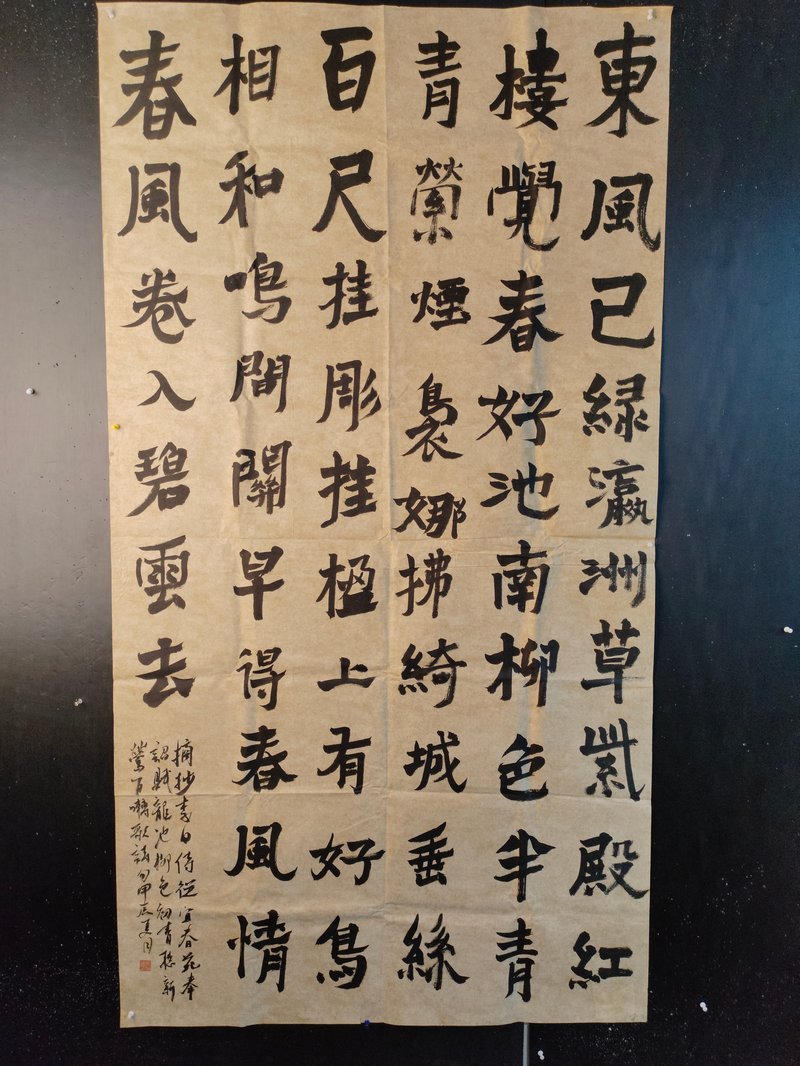 東風已綠瀛洲草紫殿紅
樓覺春好池南柳色半青
青縈煙裊娜拂綺城垂絲
百尺挂彫挂楹上有好鳥
相和鳴間關早得春風情
春風卷入碧雲去
摘抄李白侍從宜春苑奉
詔賦龍池柳色初青聽新
鶯百囀歌詩句甲辰夏月